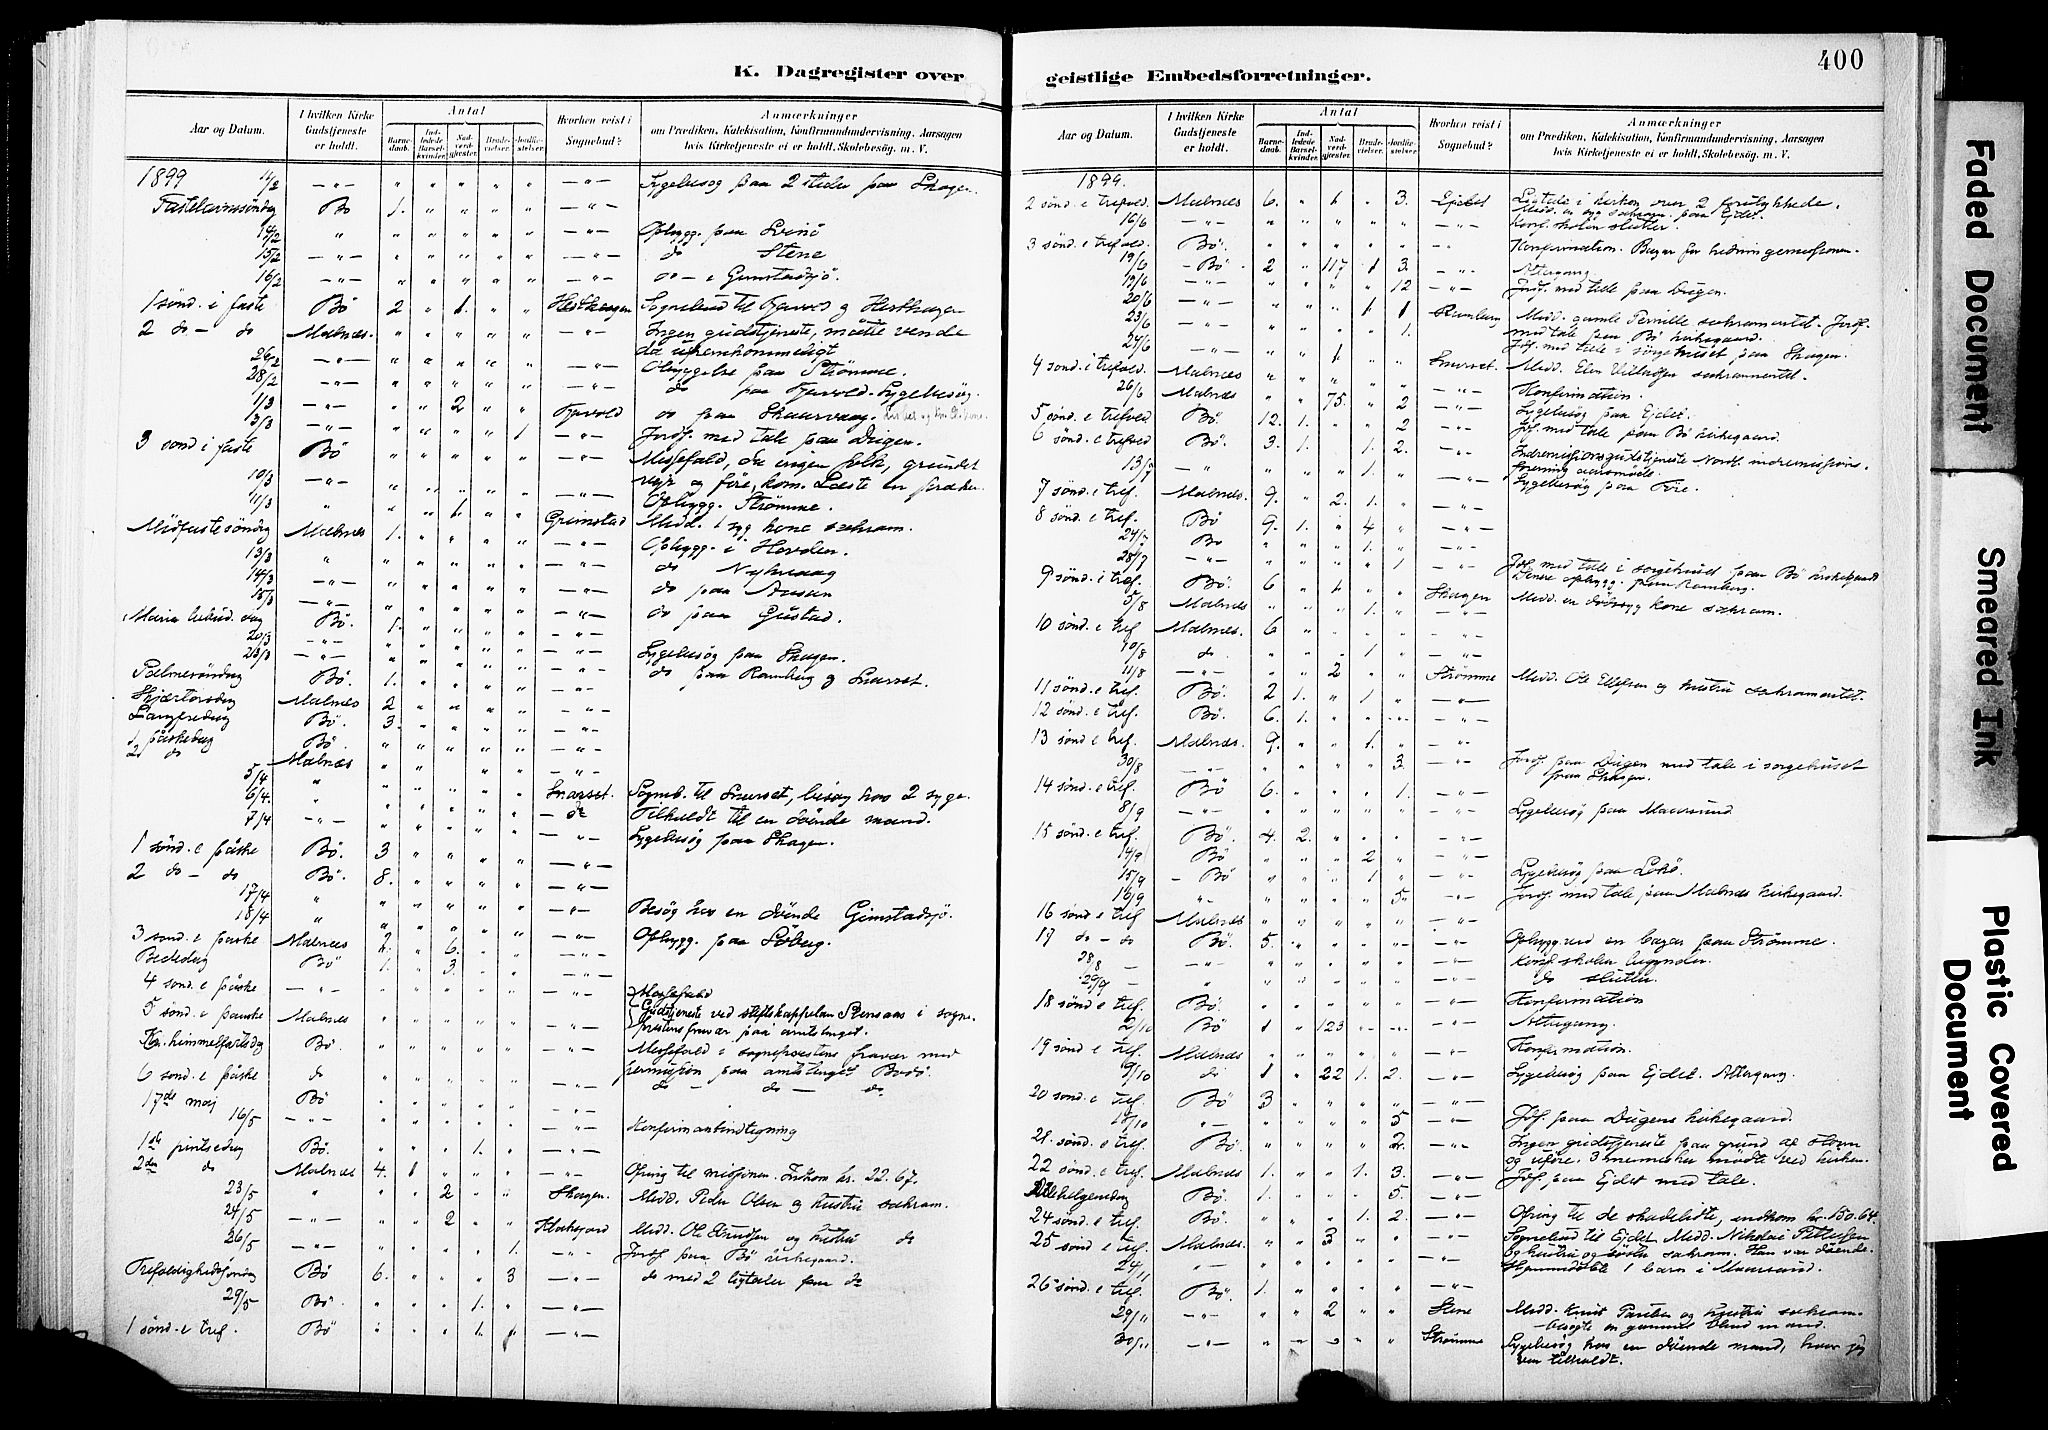 400
K. Dagregister over geistlige Embedsforretninger.
Aar og Datum.
I hvilken Kirke Gudstjeneste er holdt.
Antal
Barnedaab.
Indledede Barselkvinder.
Nadverdgjester.
Brudevielser.
Jordfæstelser.
Hvorhen reist i Sognebud?
Anmærkninger
om Prædiken, Katekisation, Konfirmandundervisning, Aarsagen
hvis Kirketjeneste ei er holdt, Skolebesøg. m. V.
1899 11/2 Sygebesøg paa 2 steder paa Skagen.
Fastelavnssöndag Bö 1.
14/2 Opbygg. paa Svinö
15/2 do Stene
16/2 do - Gimstadsjö
1 sönd. i faste Bö 2 1. Hesthagen Sognebud til Fjærvol og Hesthagen
2 do - do Malnes. Ingen gudstjeneste, måtte vende
da ufremkommeligt
26/2 Opbyggelse paa Strömme.
28/2 do paa Fjærvold. Sygebesög.
1/3 2 Fjærvold do paa Skaarvaag.
3/3 1 Jordf. med tale paa Drigen.
3 sönd i faste Bö Messefald, da ingen folk, grundet
veir og före, kom. Læste en præken
10/3 Opbygg. Strömme.
11/3 1. Grimstad Medd. 1 syg kone sakram.
Midfastesöndag Malnes 1. Opbygg. i Hovden.
13/3 do Nykvaag
14/3 do paa
15/3 do paa Gustad.
Maria bebud. dag Bö. 1.
20/3 Sygebesög paa Skagen.
23/3 do paa Ramberg og Snarset.
Palmesöndag Bö. 1.
Skjærtorsdag Malnes 2
Langfredag Bö. 3.
1 påskedag Bö.
2 do Malnes
5/4
6/4. Snarset. Sogneb. til Snarset, besøg hos 2 syge.
7/4 do Tilkaldt til en döende mand.
Sygebesög paa Skagen.
1 sönd. e påske Bö. 3
2 do - do Bö. 8.
17/4
18/4 Besög hos en döende Gimstadsjö.
3 sönd. e påske Malnes 2. 6. Opbygg. paa Söberg.
Bededag Bö 1. 3.
4 sönd. e påske Messefald
5 sönd. e påske Malnes Gudstjeneste ved stiftskappelan Stensaas i sogne-
prestens fravær paa amtstinget.
Kr. himmelfartsdag Bö. Messefald i sogneprestens fravær med
permission paa amtstinget Bodö.
6 sönd. e påske do do — do — do
17de maj Bö
16/5 Konfirmantindtegning
1ste pintsedag Bö. 1.
2den do Malnes 4. 1 Ofring til missionen. Indkom kr. 22.67.
23/5 2 Skagen. Medd. Peder Olsen og hustru sakram.
24/5 2 Medd. Ole Knudsen og hustru do
26/5 1. Jordf. paa Bö kirkegaard.
Trefoldighedssöndag Bö 6. 3 do med 2 ligtaler paa do
29/5 Bö. 1.
1 sönd. e tref. Bö 1.
1899.
2 sönd. e trefold. Malnes 6. 1 3. Ejdet Ligtale i kirken over 2 forulykkede.
Medd. en syg sakram. paa Ejdet.
16/6 Konf. skolen slutter.
3 sönd. e trefold. Bö. Konfirmation. Bazar for hedningemissionen.
19/6 Bö. 2 117 1 3. Altergang.
19/6 12 Jordf. med tale paa Drigen.
20/6 1 1
23/6 1. Ramberg Medd. gamle Pernille sakramentet. Jordf.
med tale paa Bö kirkegaard.
24/6 1. Snarset. Jof. med tale i sörgehuset paa Skagen.
4 sönd. e trefold. Malnes Medd. Elen sakramentet.
26/6 Malnes 75. 2 Konfirmation.
5 sönd. e trefold Bö. 12. 1. 2 Sygebesög paa Ejdet.
6 sönd. e trefold Bö. 3. 1. 1. 2. Jof. med tale paa Bö kirkegaard.
13/7 1. Indremissionsgudstjeneste Nordl. indremissions-
forening aarsmöde.
7 sönd. e tref. Malnes. 9. 2. 1. Sygebesög paa Före.
8 sönd. e tref. Bö 9. 1. 4
24/7 Bö 1.
28/7 1 Jof. med tale i sorgehuset paa Bö kirkegaard
9 sönd. i tref. Bö. 6 1 Skagen Senere opbygg. paa Ramberg.
5/8 Malnes 1. Medd. en dödssyg kone sakram.
10 sönd. e tref Malnes. 6
10/8 do 1
11/8 2 Strömme Medd. Ole Ellefsen og hustru sakramentet.
11 sönd. e tref. Bö. 2 1. 1
12 sönd. e tref. Bö. 6. 1.
13 sönd. e tref. Malnes. 9. 1.
30/8 3. Jordf. paa Drigen med tale i sorgehuset
paa Skagen.
14 sönd. e tref. Bö 6. 1.
8/9 Sygebesøg paa Maarsund.
15 sönd. e tref. Bö. 4. 2.
14/9 Bö 2
15/9 Bö 1 Sygebesög paa Lökö.
16/9 5 Jordf. med tale paa Malnes kirkegaard.
16 sönd e tref Malnes
17 do - do Bö. 5. Opbygg. ved en bazar paa Strömme.
28/8 Konf. skolen begynder.
29/9 do slutter.
18 sönd e tref. Bö. Konfirmation
2/10 Bö 1 123 Altergang.
19 sönd e tref. Malnes Konfirmation.
9/10 do 1 22 1. 2. Sygebesög paa Ejdet. Altergang.
20 sönd. e tref. Bö 3
18/10 5 Jof. paa Drigens kirkegaard.
21. sönd. e tref Bö. 2. Ingen gudstjeneste paa grund af storm
og uföre. 3 mennesker mödte ved kirken.
22 sönd. e tref. Malnes 1. 1. 3. Jof. paa Ejdet med tale.
Allehelgensdag Bö. 1. 5.
24 sönd. e tref. Bö. 1. 2. Ofring til de skadelidte, indkom kr. 150.64.
25 sönd e tref. Malnes. 3 Sognebud til Ejdet. Medd. Nikolai Pettersen
og hustru og sakram. Han var döende.
24/11 1 barn i Maarsund.
26 sönd. e tref. Bö. 1.
29/11 2 Stene Medd. Knut og hustru sakram.
— besøgte en gammel blind mand.
30/11 Strömme Sygebesög hos en döende mand, hvor jeg
var tilkaldt.
Faded Document
Smeared Ink
Plastic Covered
Document